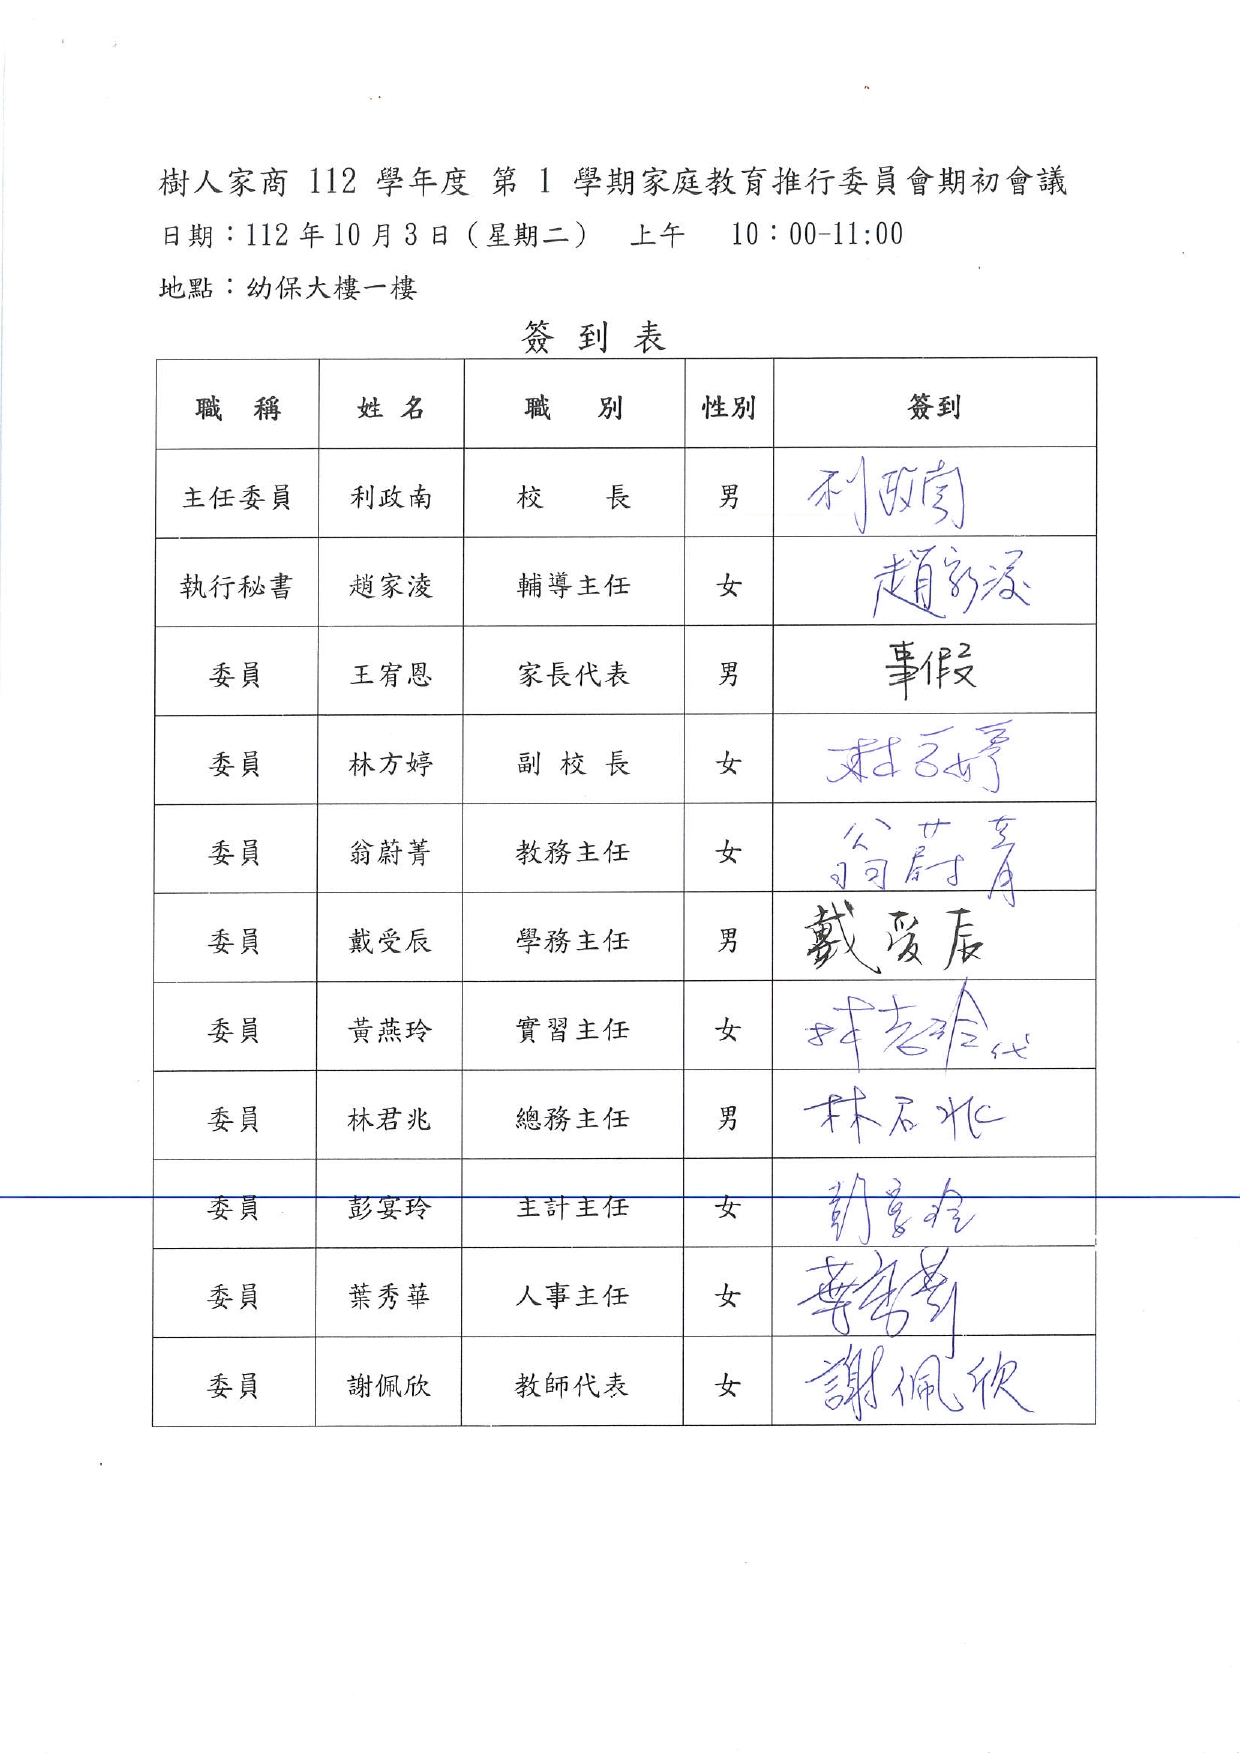 樹人家商 112 學年度 第 1 學期家庭教育推行委員會期初會議
日期：112 年 10 月 3 日（星期二） 上午 10：00-11:00
地點：幼保大樓一樓
簽 到 表
職 稱 姓 名 職 別 性別 簽到
主任委員 利政南 校 長 男 利政南
執行秘書 趙家淩 輔導主任 女 趙家淩
委員 王宥恩 家長代表 男 事假
委員 林方婷 副 校 長 女 林方婷
委員 翁蔚菁 教務主任 女 翁蔚菁
委員 戴受辰 學務主任 男 戴受辰
委員 黃燕玲 實習主任 女 代
委員 林君兆 總務主任 男 林君兆
委員 彭宴玲 主計主任 女 彭宴玲
委員 葉秀華 人事主任 女 葉秀華
委員 謝佩欣 教師代表 女 謝佩欣